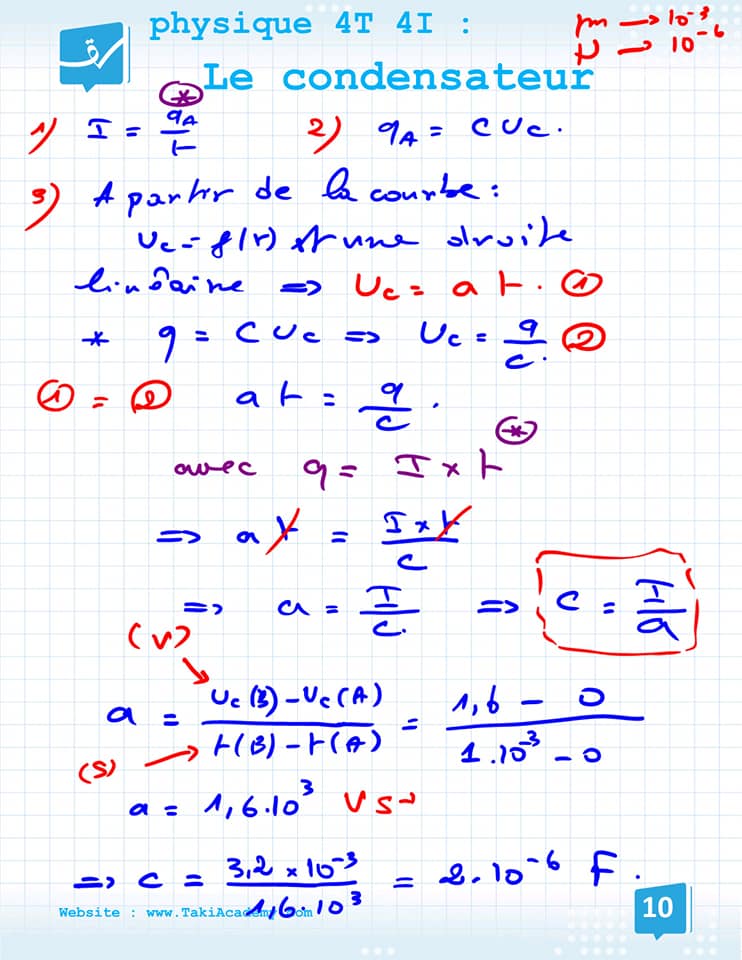 physique 4T 4I :
m → 10⁻³
μ → 10⁻⁶
Le condensateur
1) I = qA / t (*)
2) qA = C Uc.
3) A partir de la courbe :
Uc = f(t) est une droite
linéaire => Uc = a t . ①
* q = C Uc => Uc = q / C. ②
① = ② a t = q / C .
avec q = I × t (*)
=> a t = I × t / C
=> a = I / C. => C = I / a
(V)
a = Uc(B) - Uc(A) / t(B) - t(A) = 1,6 - 0 / 1.10⁻³ - 0
(S)
a = 1,6.10³ V S⁻¹
=> C = 3,2 × 10⁻³ / 1,6.10³ = 2.10⁻⁶ F.
Website : www.TakiAcademy.com
10